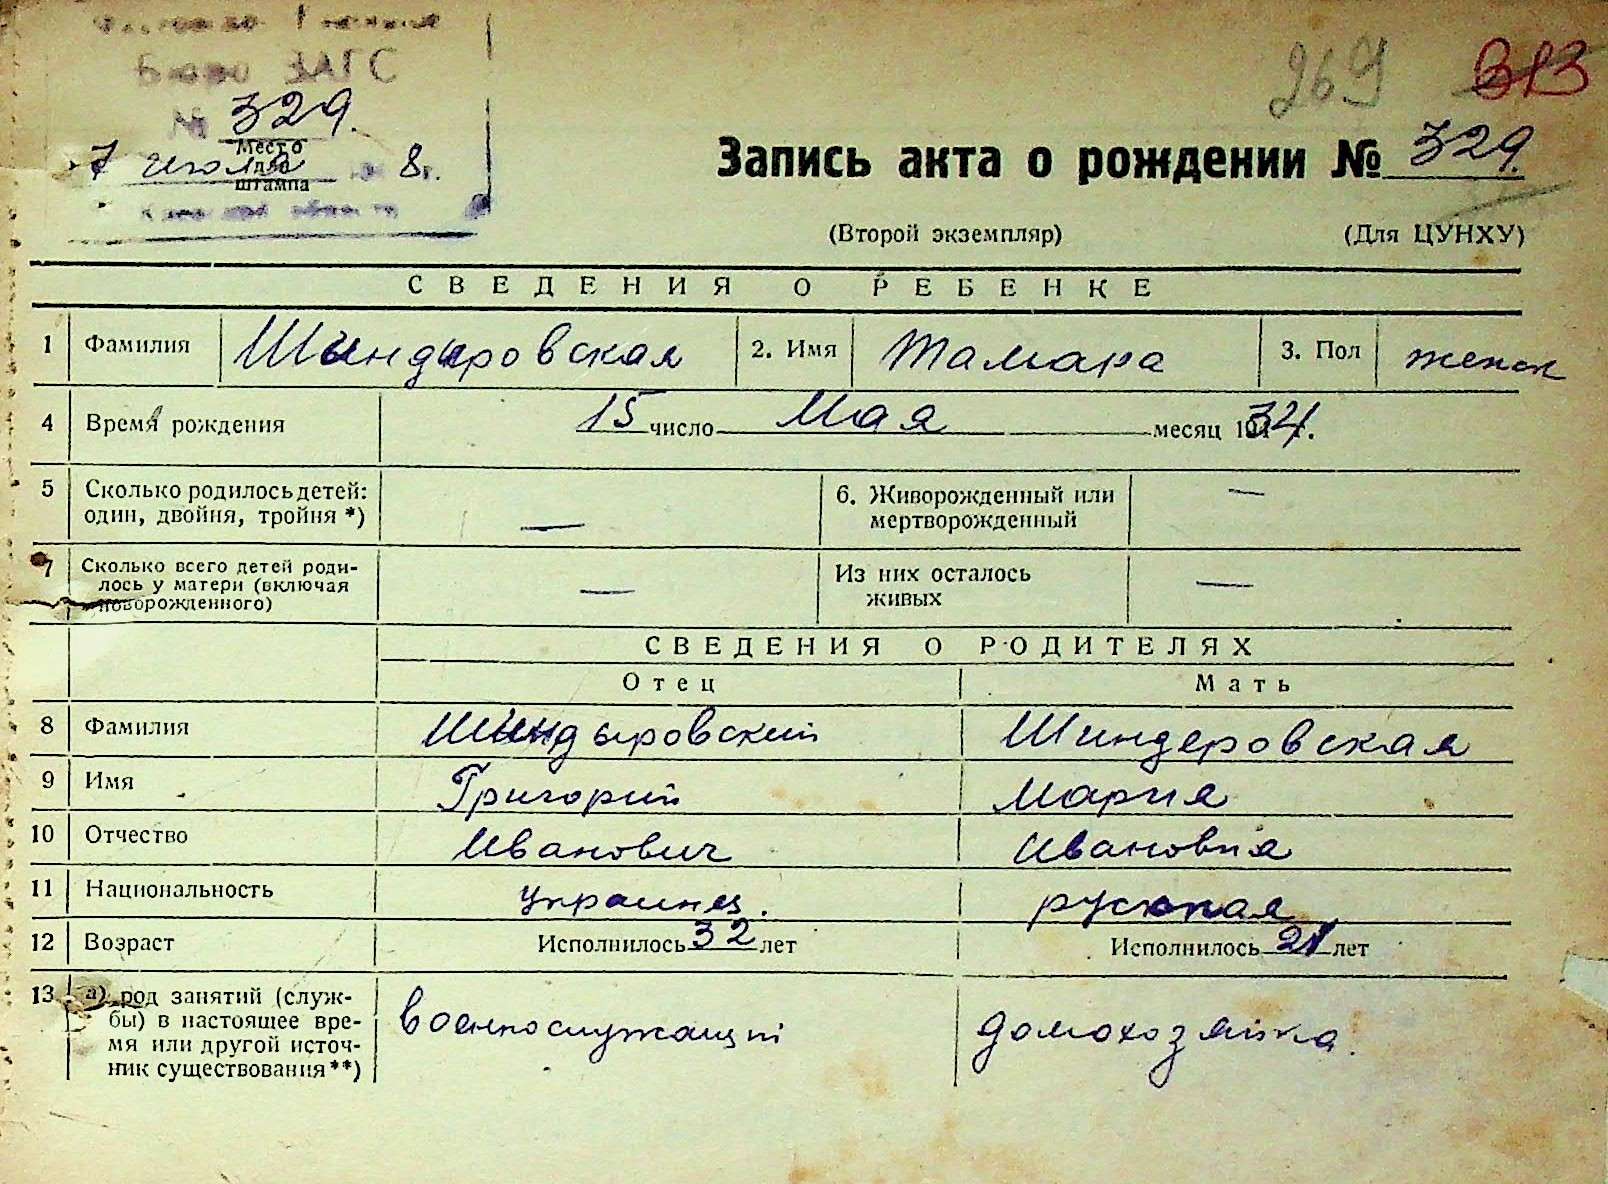 Бюро ЗАГС
№ 329.
Место
для
штампа
7 июля 8г.
области
269 313
Запись акта о рождении № 329.
(Второй экземпляр) (Для ЦУНХУ)
СВЕДЕНИЯ О РЕБЕНКЕ
1 Фамилия Шындыровская 2. Имя Тамара 3. Пол женск
4 Время рождения 15 число Мая месяц 1934 г.
5 Сколько родилось детей: один, двойня, тройня *) — 6. Живорожденный или мертворожденный —
7 Сколько всего детей родилось у матери (включая новорожденного) — Из них осталось живых —
СВЕДЕНИЯ О РОДИТЕЛЯХ
Отец Мать
8 Фамилия Шындыровский Шиндеровская
9 Имя Григорий Мария
10 Отчество Иванович Ивановна
11 Национальность украинец. русская
12 Возраст Исполнилось 32 лет Исполнилось 21 лет
13 а) род занятий (службы) в настоящее время или другой источник существования **) военнослужащий домохозяйка.